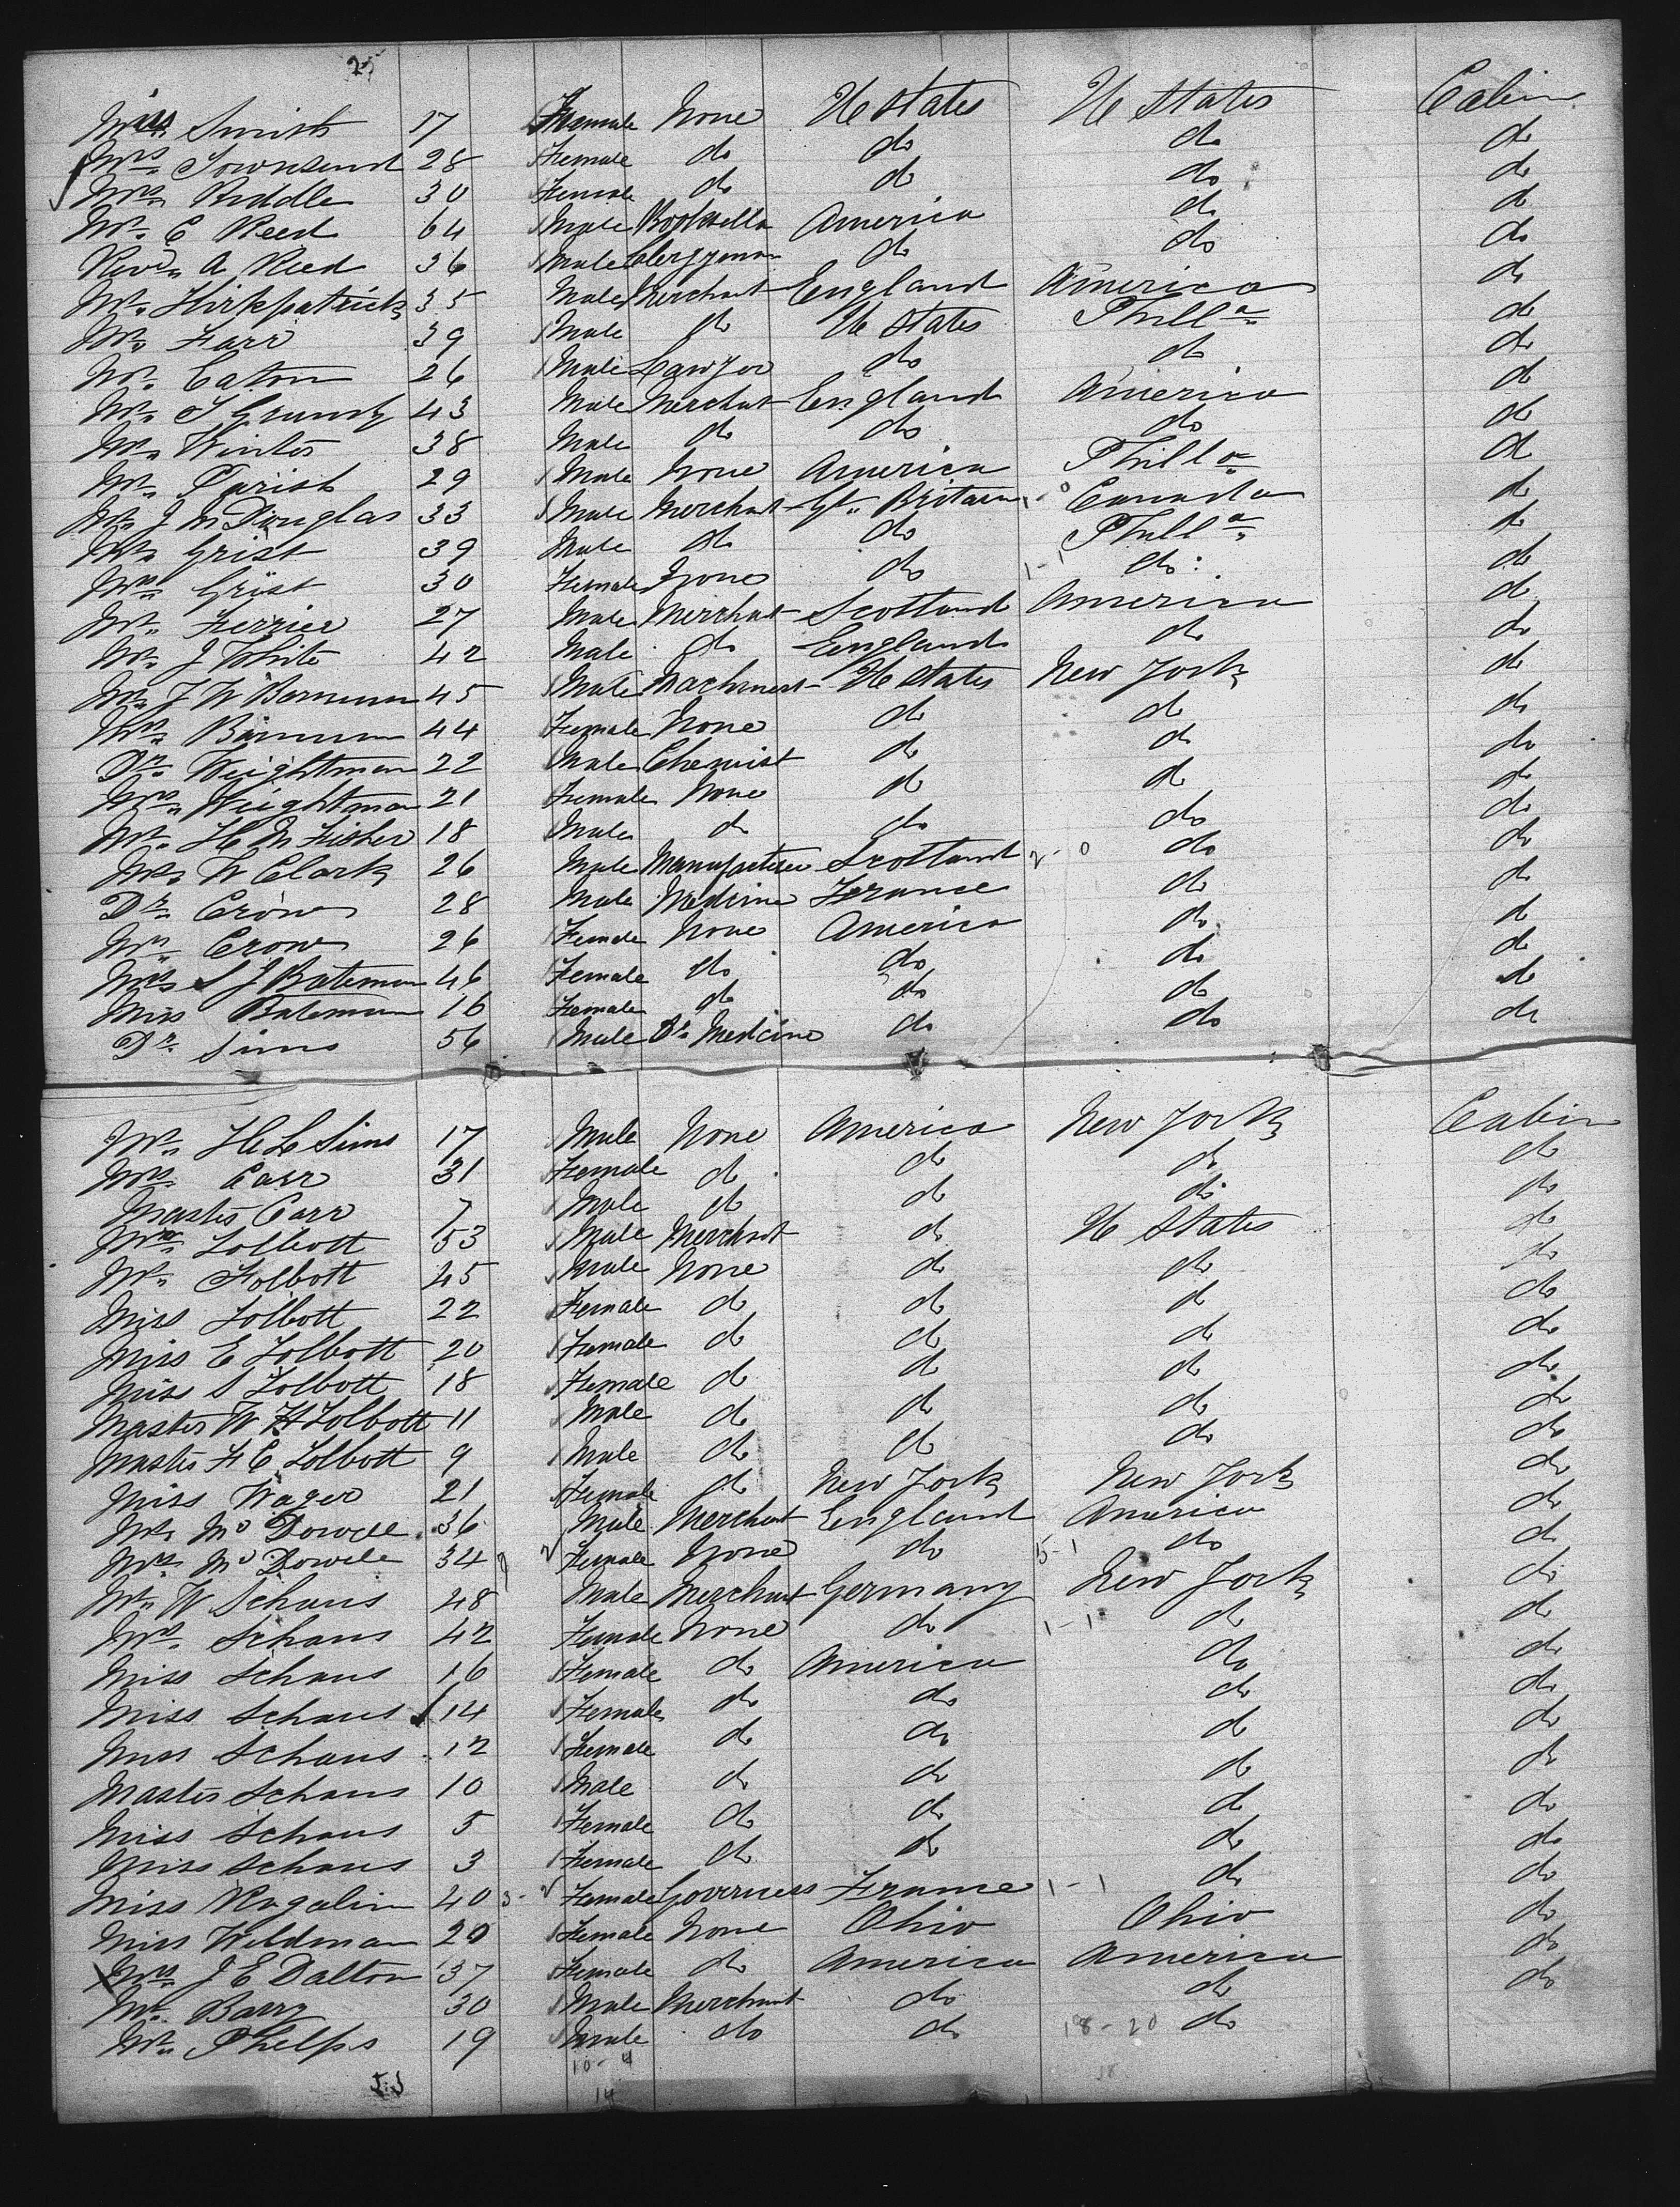 25
Miss Smith 17 Female None U States U States Cabin
Mrs Townsend 28 Female do do do do
Mrs Riddle 30 Female do do do do
Mr. E Reed 64 Male Bookseller America do do
Revd. A Reed 36 Male Clergyman do do do
Mr. Kirkpatrick 35 Male Merchant England America do
Mr. Farr 39 Male do U States Philla do
Mr. Eaton 26 Male Lawyer do do do
Mr. T Grundy 43 Male Merchant England America do
Mr. Winter 38 Male do do do do
Mr. Parish 29 Male None America Philla do
Mr. J M Douglas 33 Male Merchant Gt. Britain 1-0 Canada do
Mr. Grist 39 Male do do Philla do
Mrs Grist 30 Female None do 1-1 do do
Mr. Ferrier 27 Male Merchant Scotland America do
Mr. J White 42 Male do England do do
Mr. J W Barnum 45 Male Machinest U States New York do
Mrs Barnum 44 Female None do do do
Dr. Weightman 22 Male Chemist do do do
Mrs Weightman 21 Female None do do do
Mr. H M Fisher 18 Male do do do do
Mr. W Clark 26 Male Scotland 2-0 do do
Dr. Crow 28 Male Medicine France do do
Mrs Crow 26 Female None America do do
Mrs S J Bateman 46 Female do do do do
Miss Bateman 16 Female do do do do
Dr. Sims 56 Male Dr. Medicine do do do
Mr. H L Sims 17 Male None America New York Cabin
Mrs Carr 31 Female do do do do
Master Carr 7 Male do do do do
Mr. Tolbott 53 Male Merchant do U States do
Mr. Tolbott 25 Male None do do do
Miss Tolbott 22 Female do do do do
Miss E Tolbott 20 Female do do do do
Miss S Tolbott 18 Female do do do do
Master W H Tolbott 11 Male do do do do
Master F C Tolbott 9 Male do do do do
Miss Wager 21 Female do New York New York do
Mr. Mc Dowell 36 Male Merchant England America do
Mrs Mc Dowell 34 Female None do 15-1 do do
Mr. W Schaus 48 Male Merchant Germany New York do
Mrs. Schaus 42 Female None do 1-1 do do
Miss Schaus 16 Female do America do do
Miss Schaus 14 Female do do do do
Miss Schaus 12 Female do do do do
Master Schaus 10 Male do do do do
Miss Schaus 5 Female do do do do
Miss Schaus 3 Female do do do do
Miss 40 Female Governess France 1-1 do do
Miss Weldman 20 Female None Ohio Ohio do
Mrs J E Dalton 37 Female do America America do
Mr. Barry 30 Male Merchant do do do
Mr. Phelps 19 Male do do 18-20 do
53 10-4
14 18